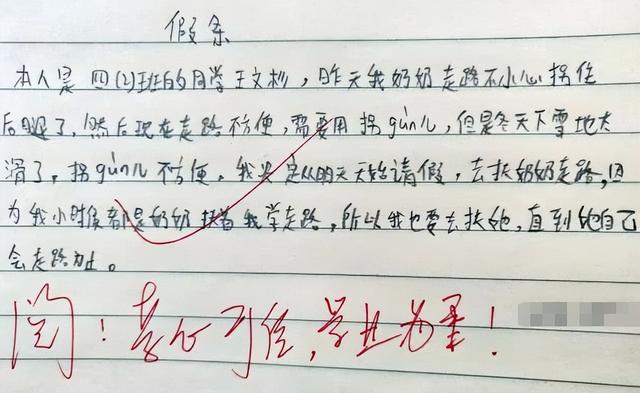 假条
本人是四(2)班的同学王文彬，昨天我奶奶走路不小心拐住
后腿了，然后现在走路不方便，需要用拐gùnル，但是冬天下雪地太
滑了，拐gùnル不方便，我决定从明天开始请假，去扶奶奶走路，因
为我小时候都是奶奶扶着我学走路，所以我也要去扶她，直到她自己
会走路为止。
阅：孝心可佳，学业为重！